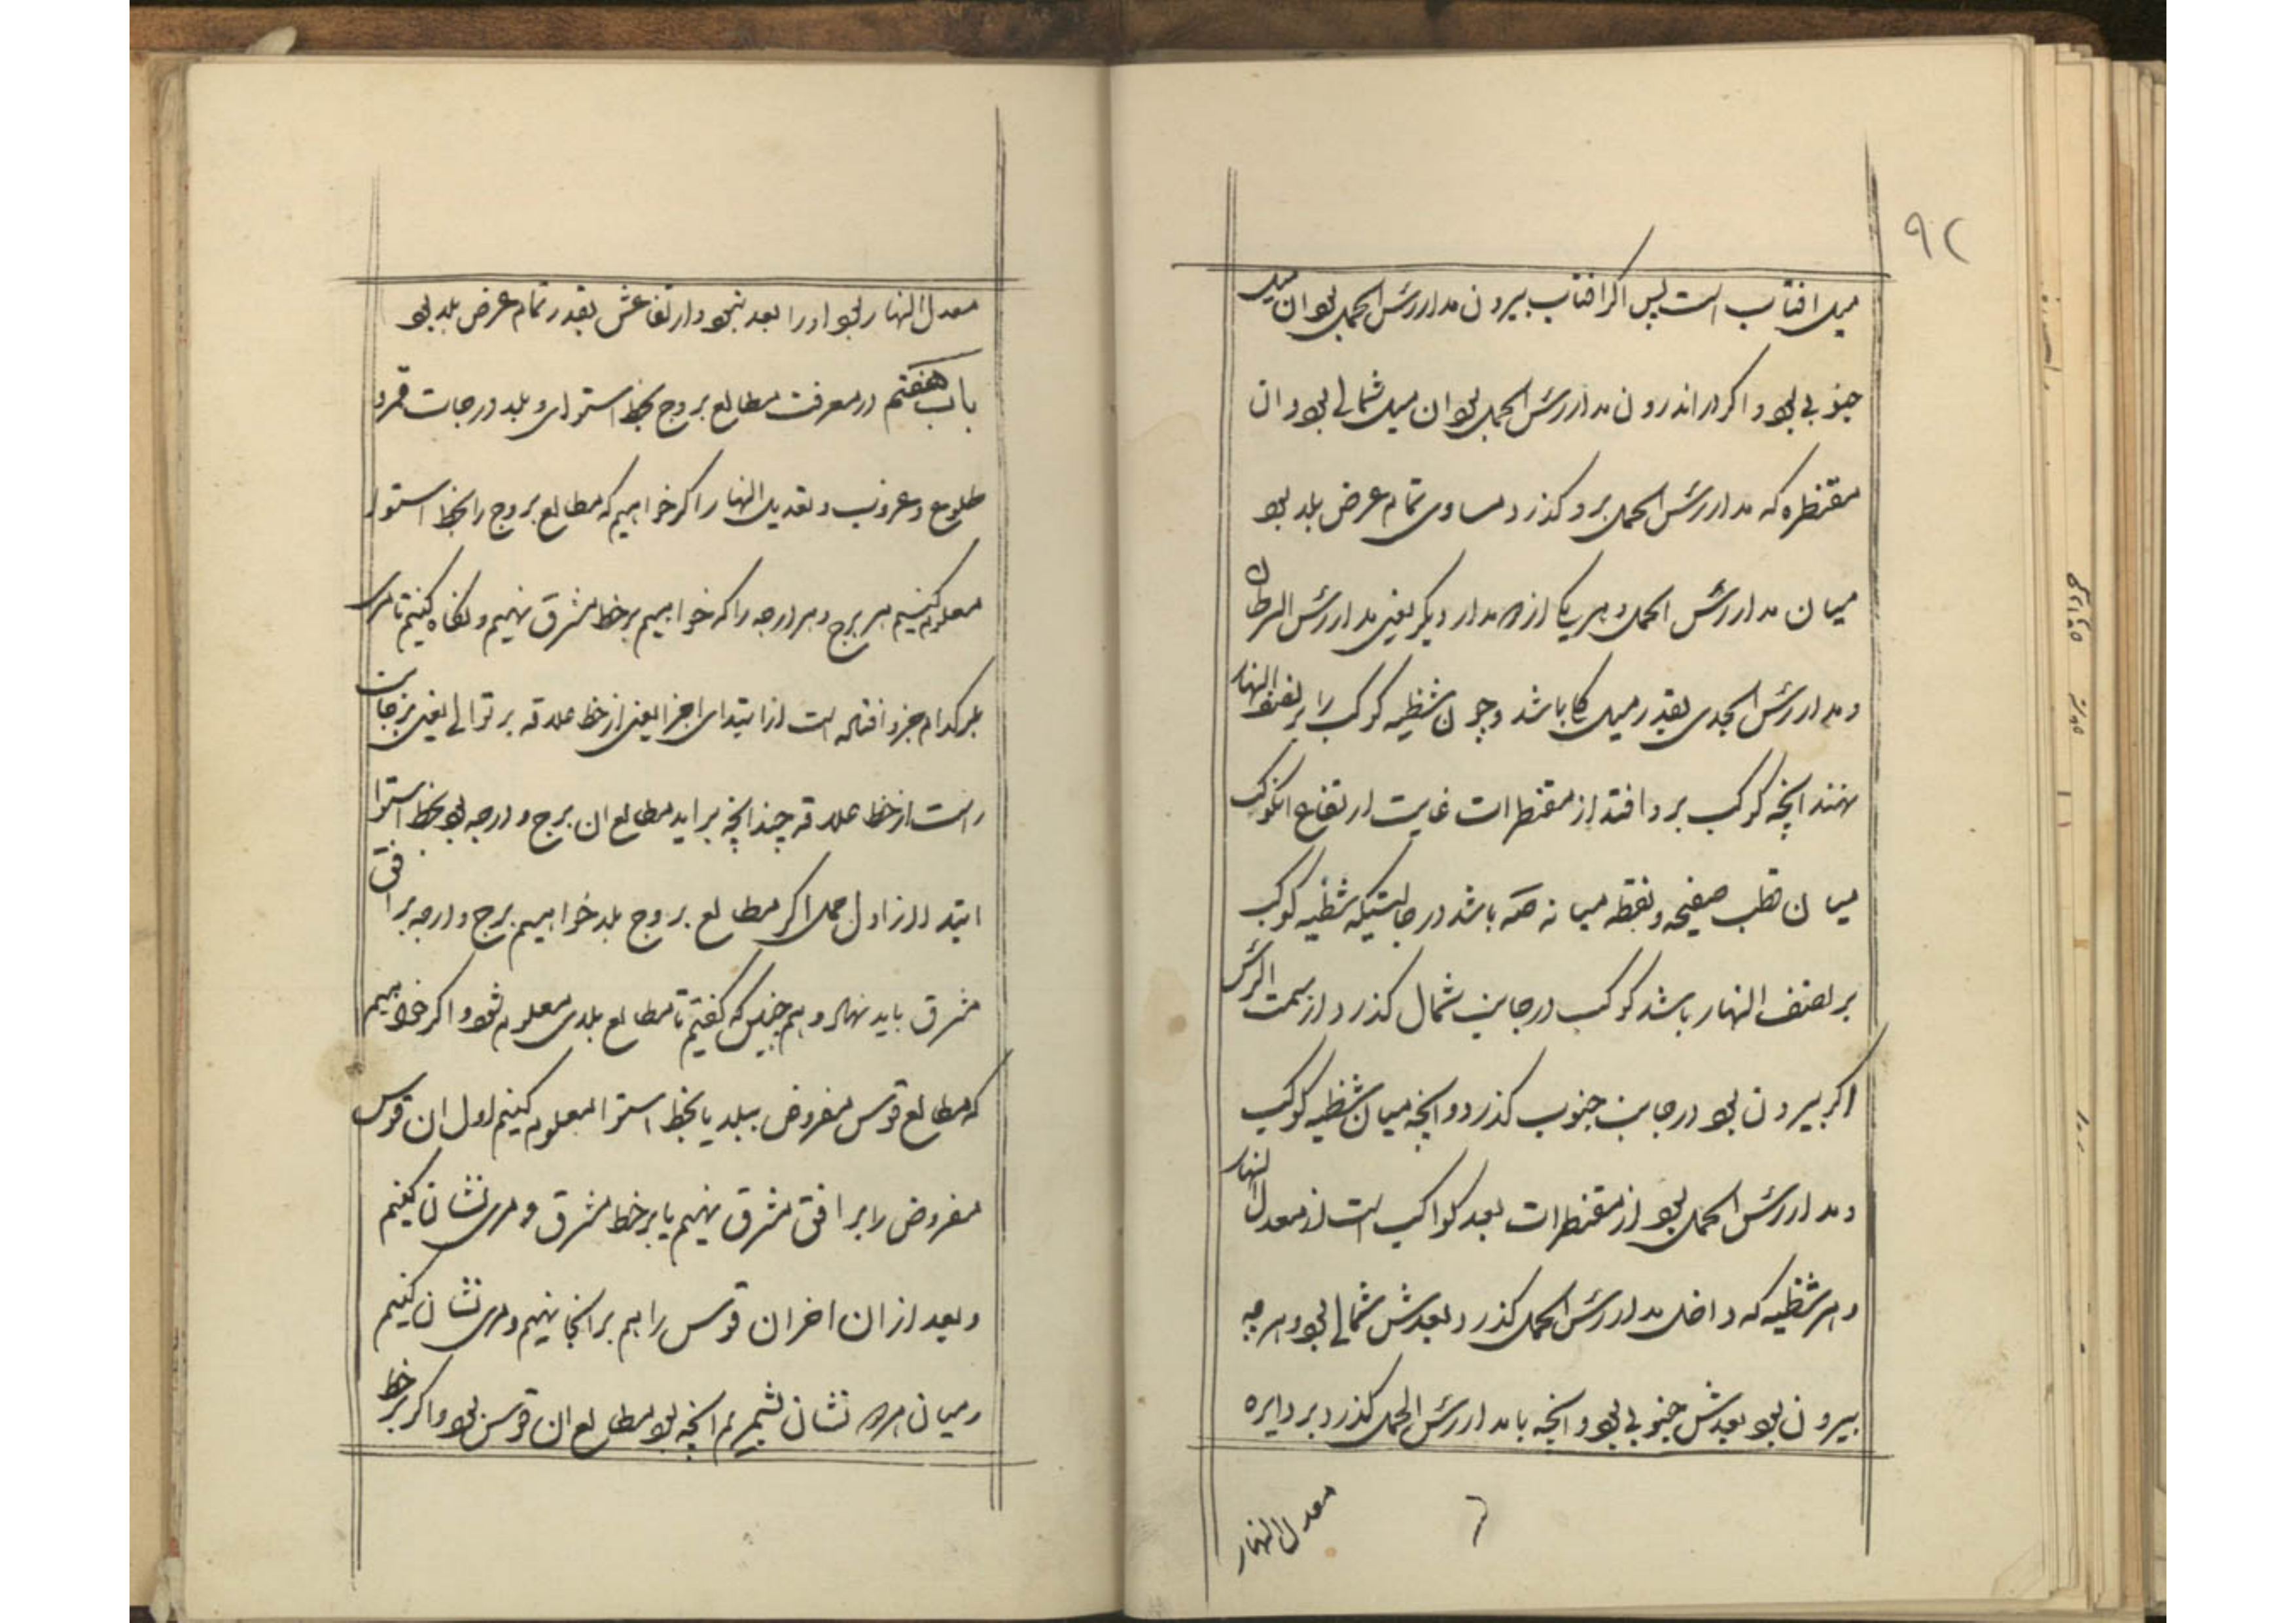 ۹۲
میل افتاب است پس اکر افتاب بیرون مدار رئس الحمل بود ان میل
جنوبی بود و اکر در اندرون مدار رئس الحمل بود ان میل شمالی بود و ان
مقنطره که مدار رئس الحمل برو کذرد مساوی تمام عرض بلد بود
میان مدار رئس الحمل و هر یک از دو مدار دیکر یعنی مدار رئس السرطان
و مدار رئس الجدی بقدر میل کلی باشد و چون شظیه کوکب را بر نصف النهار
نهند انچه کوکب برو افتد از مقنطرات غایت ارتفاع انکوکب
میان قطب صفیحه و نقطه میانه صه باشد در حالتیکه شظیه کوکب
بر نصف النهار باشد کوکب در جانب شمال کذرد از سمت الرئس
اکر بیرون بود در جانب جنوب کذرد و انچه میان شظیه کوکب
و مدار رئس الحمل بود از مقنطرات بعد کواکب است از معدل النهار
و هر شظیه که داخل مدار رئس الحمل کذرد بعدش شمالی بود و هر چه
بیرون بود بعدش جنوبی بود و انچه با مدار رئس الحمل کذرد بر دایره
معدل النهار
معدل النهار بود او را بعد نبود و ارتفاعش بقدر تمام عرض بلد بود
باب هفتم در معرفت مطالع بروج بخط استوا و بلد و درجات ممر و
طلوع و غروب و تعدیل النهار اکر خواهیم که مطالع بروج را بخط استوا
معلوم کنیم هر برج و هر درجه را که خواهیم بر خط مشرق نهیم و نکاه کنیم تا مری
بر کدام جزو افتاده است از ابتدای اجزا یعنی از خط علاقه بر توالی یعنی بر جانب
راست از خط علاقه چندانچه براید مطالع ان برج و درجه بود بخط استوا
ابتدا از اول حمل اکر مطالع بروج بلد خواهیم برج و درجه بر افق
مشرق باید نهاد و هم چنین که کفتیم تا مطالع بلدی معلوم شود و اکر خواهیم
که مطالع قوس مفروض ببلد یا بخط استوا معلوم کنیم اول ان قوس
مفروض را بر افق مشرق نهیم یا بر خط مشرق و مری نشان کنیم
و بعد از ان اخر ان قوس را هم بر انجا نهیم و مری نشان کنیم
و میان هر دو نشان بشمریم انچه بود مطالع ان قوس بود و اکر بر خط